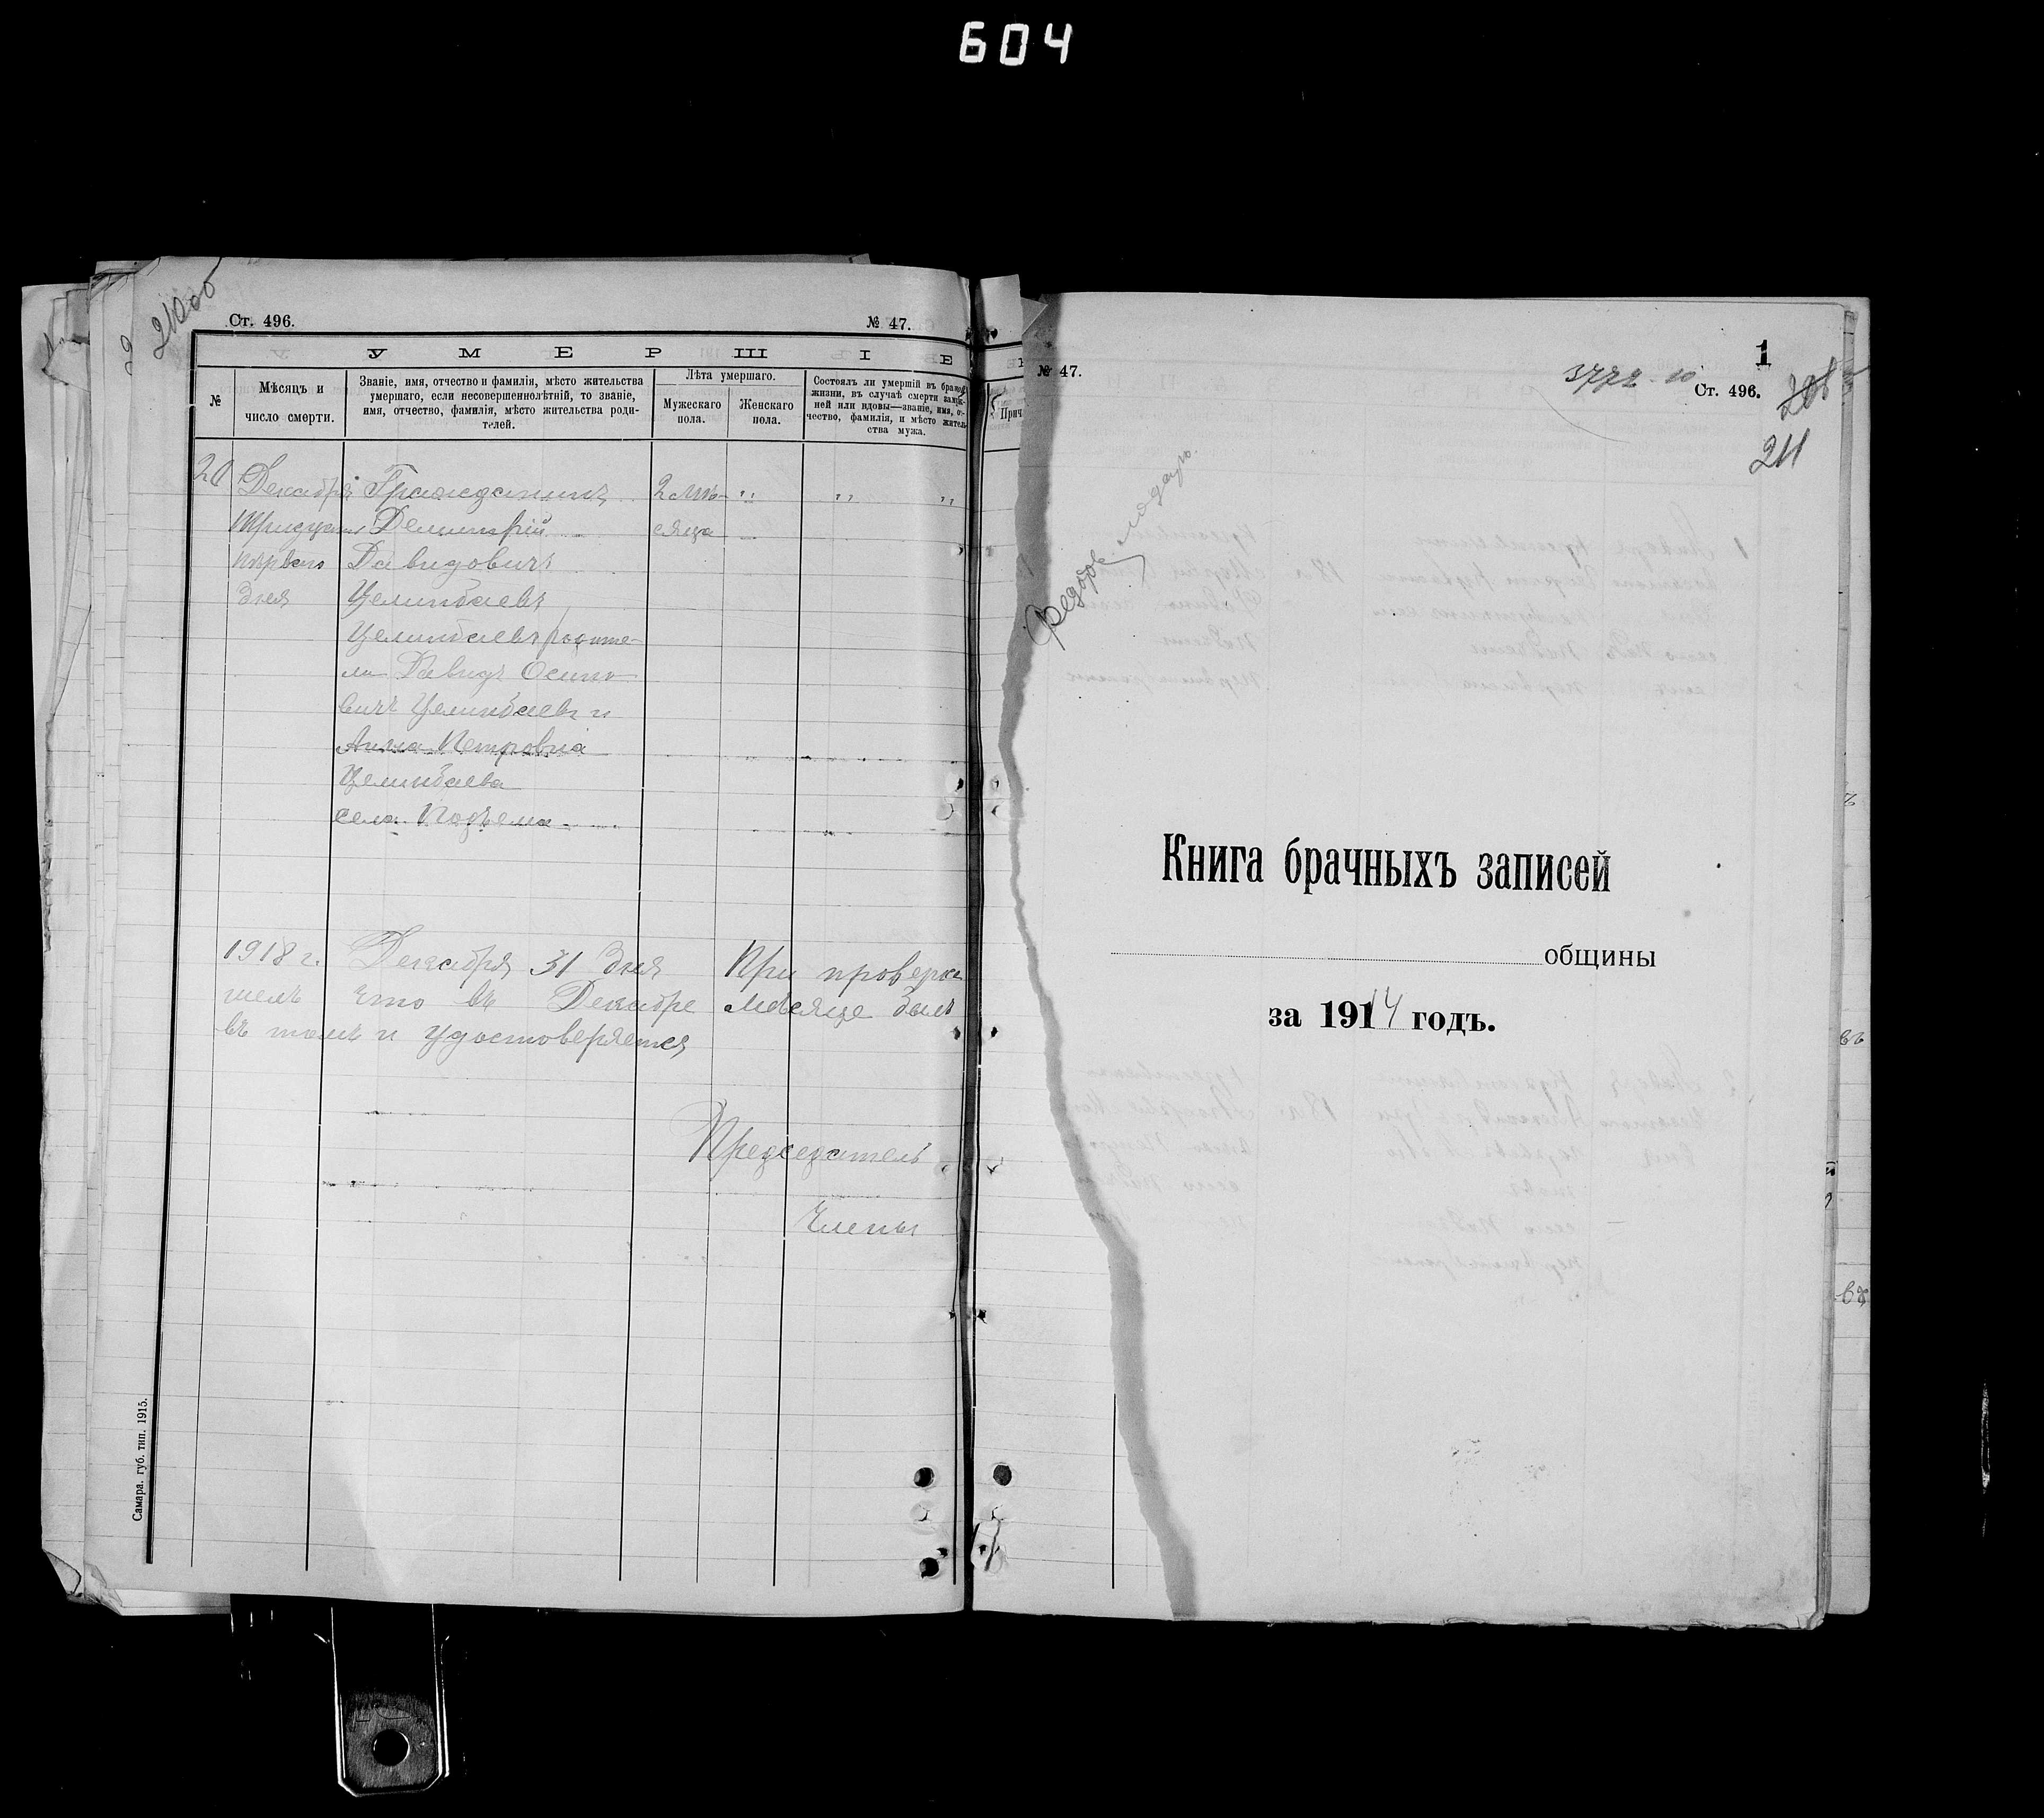 604
210об
Ст. 496.
№ 47.
УМЕРШІЕ
№
Мѣсяцъ и
число смерти.
Званіе, имя, отчество и фамилія, мѣсто жительства
умершаго, если несовершеннолѣтній, то званіе,
имя, отчество, фамилія, мѣсто жительства роди-
телей.
Лѣта умершаго.
Мужескаго
пола.
Женскаго
пола.
Состоялъ ли умершій въ брачной
жизни, въ случаѣ смерти замуж-
ней или вдовы—званіе, имя, от-
чество, фамилія, и мѣсто житель-
ства мужа.
Прич
20 Декабря Гражданинъ 2 мѣ- „ „ „
Тридцать Демитрій сяца
первого Давидовичъ
дня Целинбаевъ
Целинбаевъ родите-
ли Давидъ Осипо
вичъ Целинбаевъ и
Анна Петровна
Целинбаева
села Подъема
1918 г. Декабря 31 дня При проверке
что въ Декабре месяце
въ томъ и удостоверяется
Председатель
Члены
Самара. губ. тип. 1915.
№ 47.
1
3772-10
Ст. 496.
208
211
Федоров
Книга брачныхъ записей
общины
за 1914 годъ.